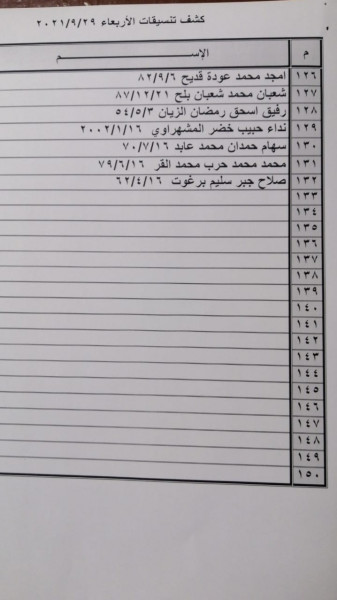 كشف تنسيقات الأربعاء ٢٠٢١/٩/٢٩
م الإســـــم
١٢٦ امجد محمد عودة قديح ٨٢/٩/٦
١٢٧ شعبان محمد شعبان بلح ٨٧/١٢/٢١
١٢٨ رفيق اسحق رمضان الزيان ٥٤/٥/٣
١٢٩ نداء حبيب خضر المشهراوي ٢٠٠٢/١/١٦
١٣٠ سهام حمدان محمد عابد ٧٠/٧/١٦
١٣١ محمد محمد حرب محمد القر ٧٩/٦/١٦
١٣٢ صلاح جبر سليم برغوت ٦٢/٤/١٦
١٣٣
١٣٤
١٣٥
١٣٦
١٣٧
١٣٨
١٣٩
١٤٠
١٤١
١٤٢
١٤٣
١٤٤
١٤٥
١٤٦
١٤٧
١٤٨
١٤٩
١٥٠